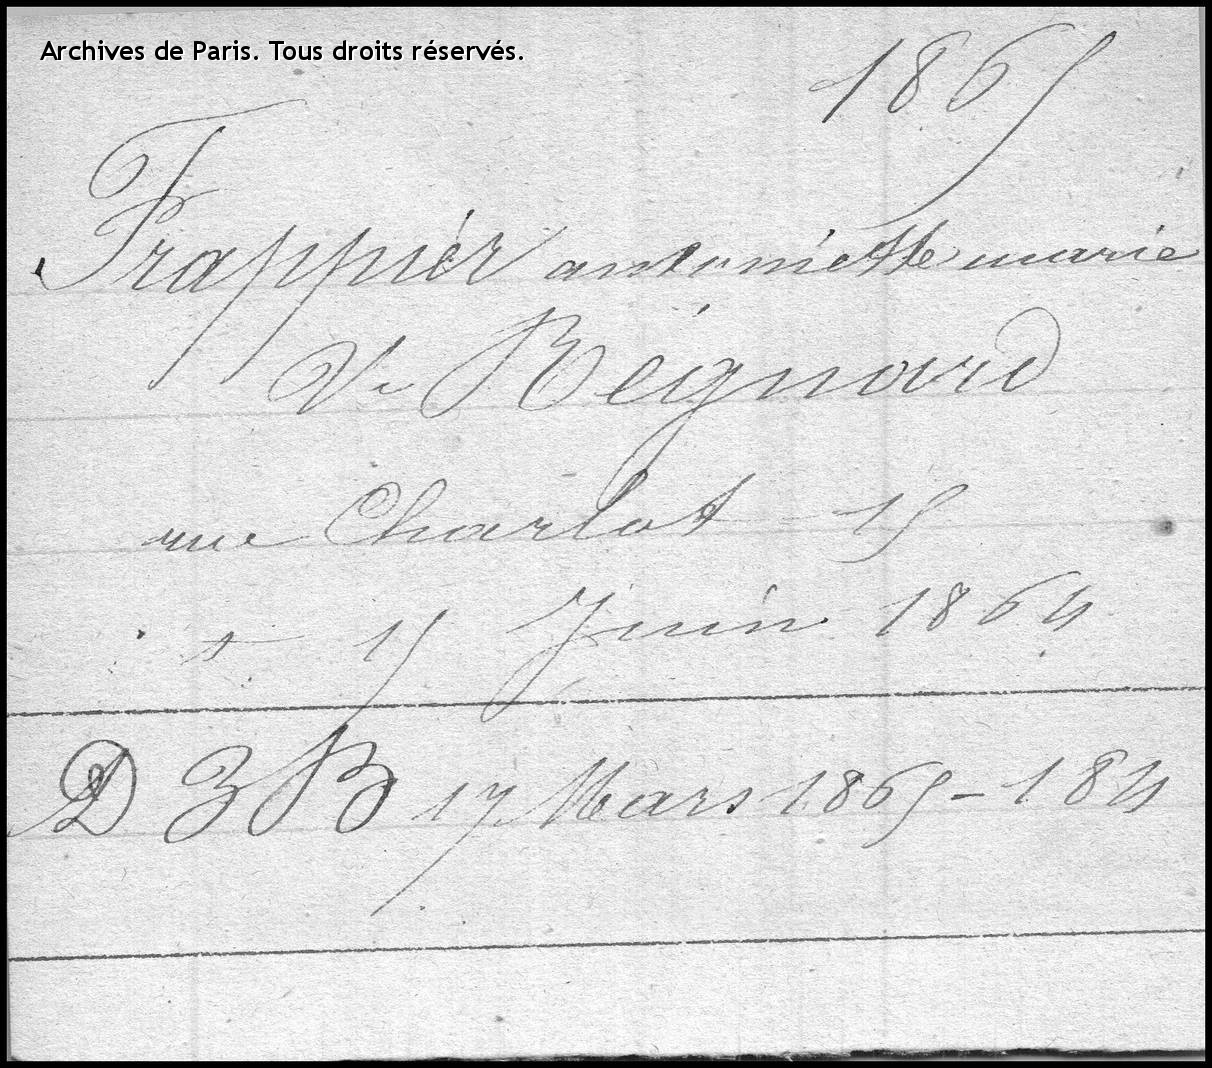 Archives de Paris. Tous droits réservés.
1865
Frappier antoinette marie
Ve Régnard
rue Charlot 15
+ 15 Juin 1864
D 3 B 17 Mars 1865 - 184